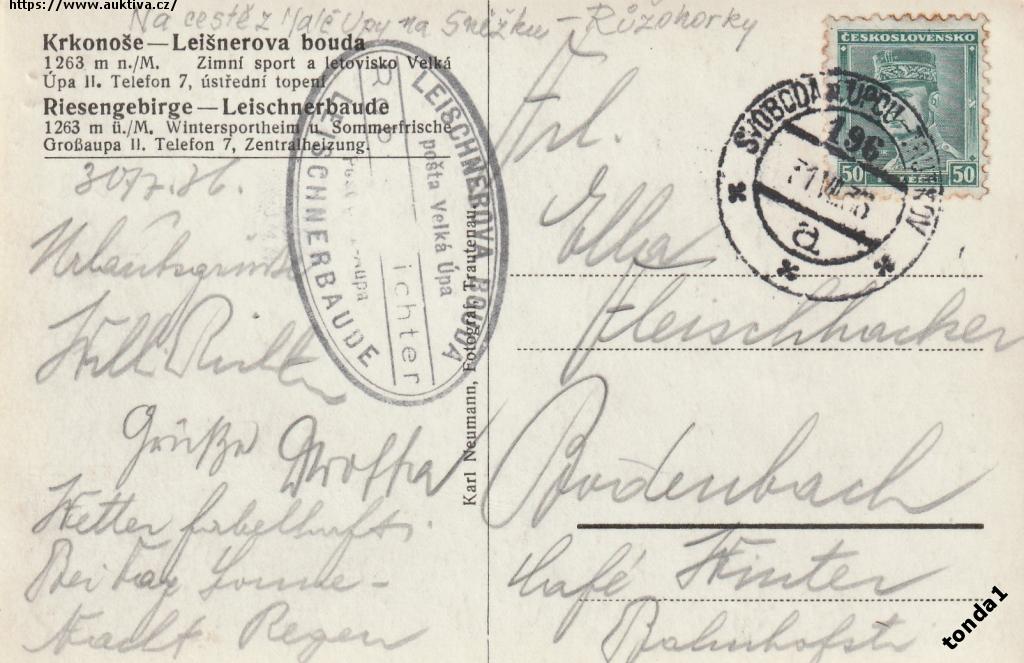 https://www.auktiva.cz/
Na cestě z Malé Úpy na Sněžku - Růžohorky
Krkonoše — Leišnerova bouda
1263 m n./M. Zimní sport a letovisko Velká
Úpa II. Telefon 7, ústřední topení
Riesengebirge — Leischnerbaude
1263 m ü./M. Wintersportheim u. Sommerfrische
Großaupa II. Telefon 7, Zentralheizung.
LEISCHNEROVA BOUDA
pošta Velká Úpa
ichter
LEISCHNERBAUDE
ČESKOSLOVENSKO
50 50
SVOBODA N. ÚPOU
196
31.VII.36
a
30/7.36.
Urlaubsgrüße
Willi Richter
Grüße
Wetter fabelhaft.
Bei Tag Sonne -
Nacht Regen
Karl Neumann, Fotograf, Trautenau.
Frl.
Ella
Fleischhacker
Bodenbach
Café Winter
Bahnhofstr
tonda1